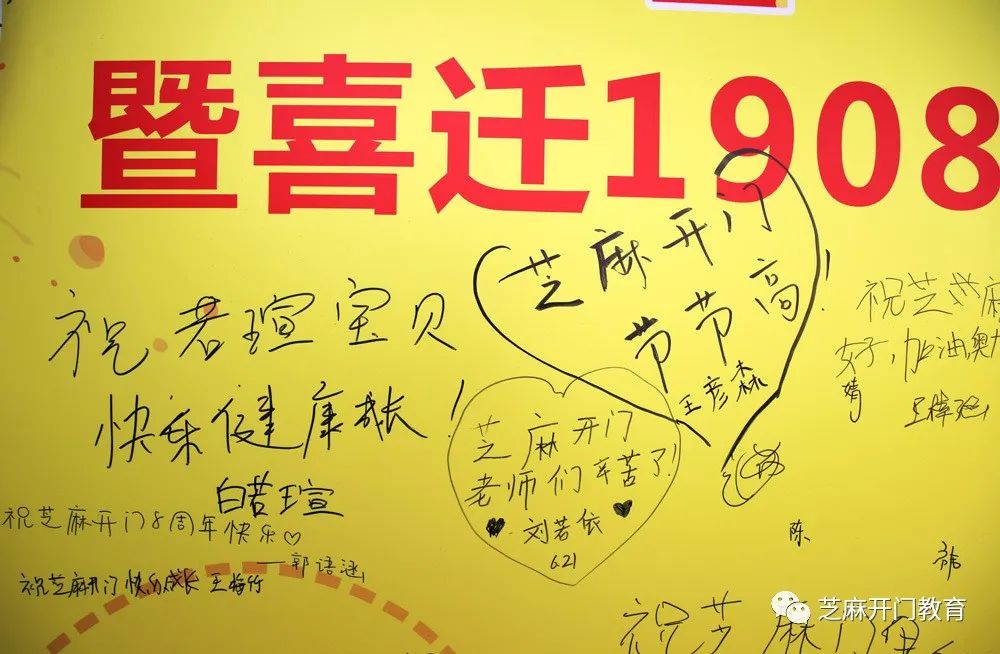 暨喜迁1908
芝麻开门
节节高!
王彦森
祝若瑄宝贝
快乐健康成长!
白若瑄
祝芝麻
好,加油,奥
婧
芝麻开门
老师们辛苦了!
刘若依
6.21
祝芝麻开门8周年快乐♡
——郭语涵
祝芝麻开门快乐成长 王梅竹
陈
祝芝麻门
芝麻开门教育